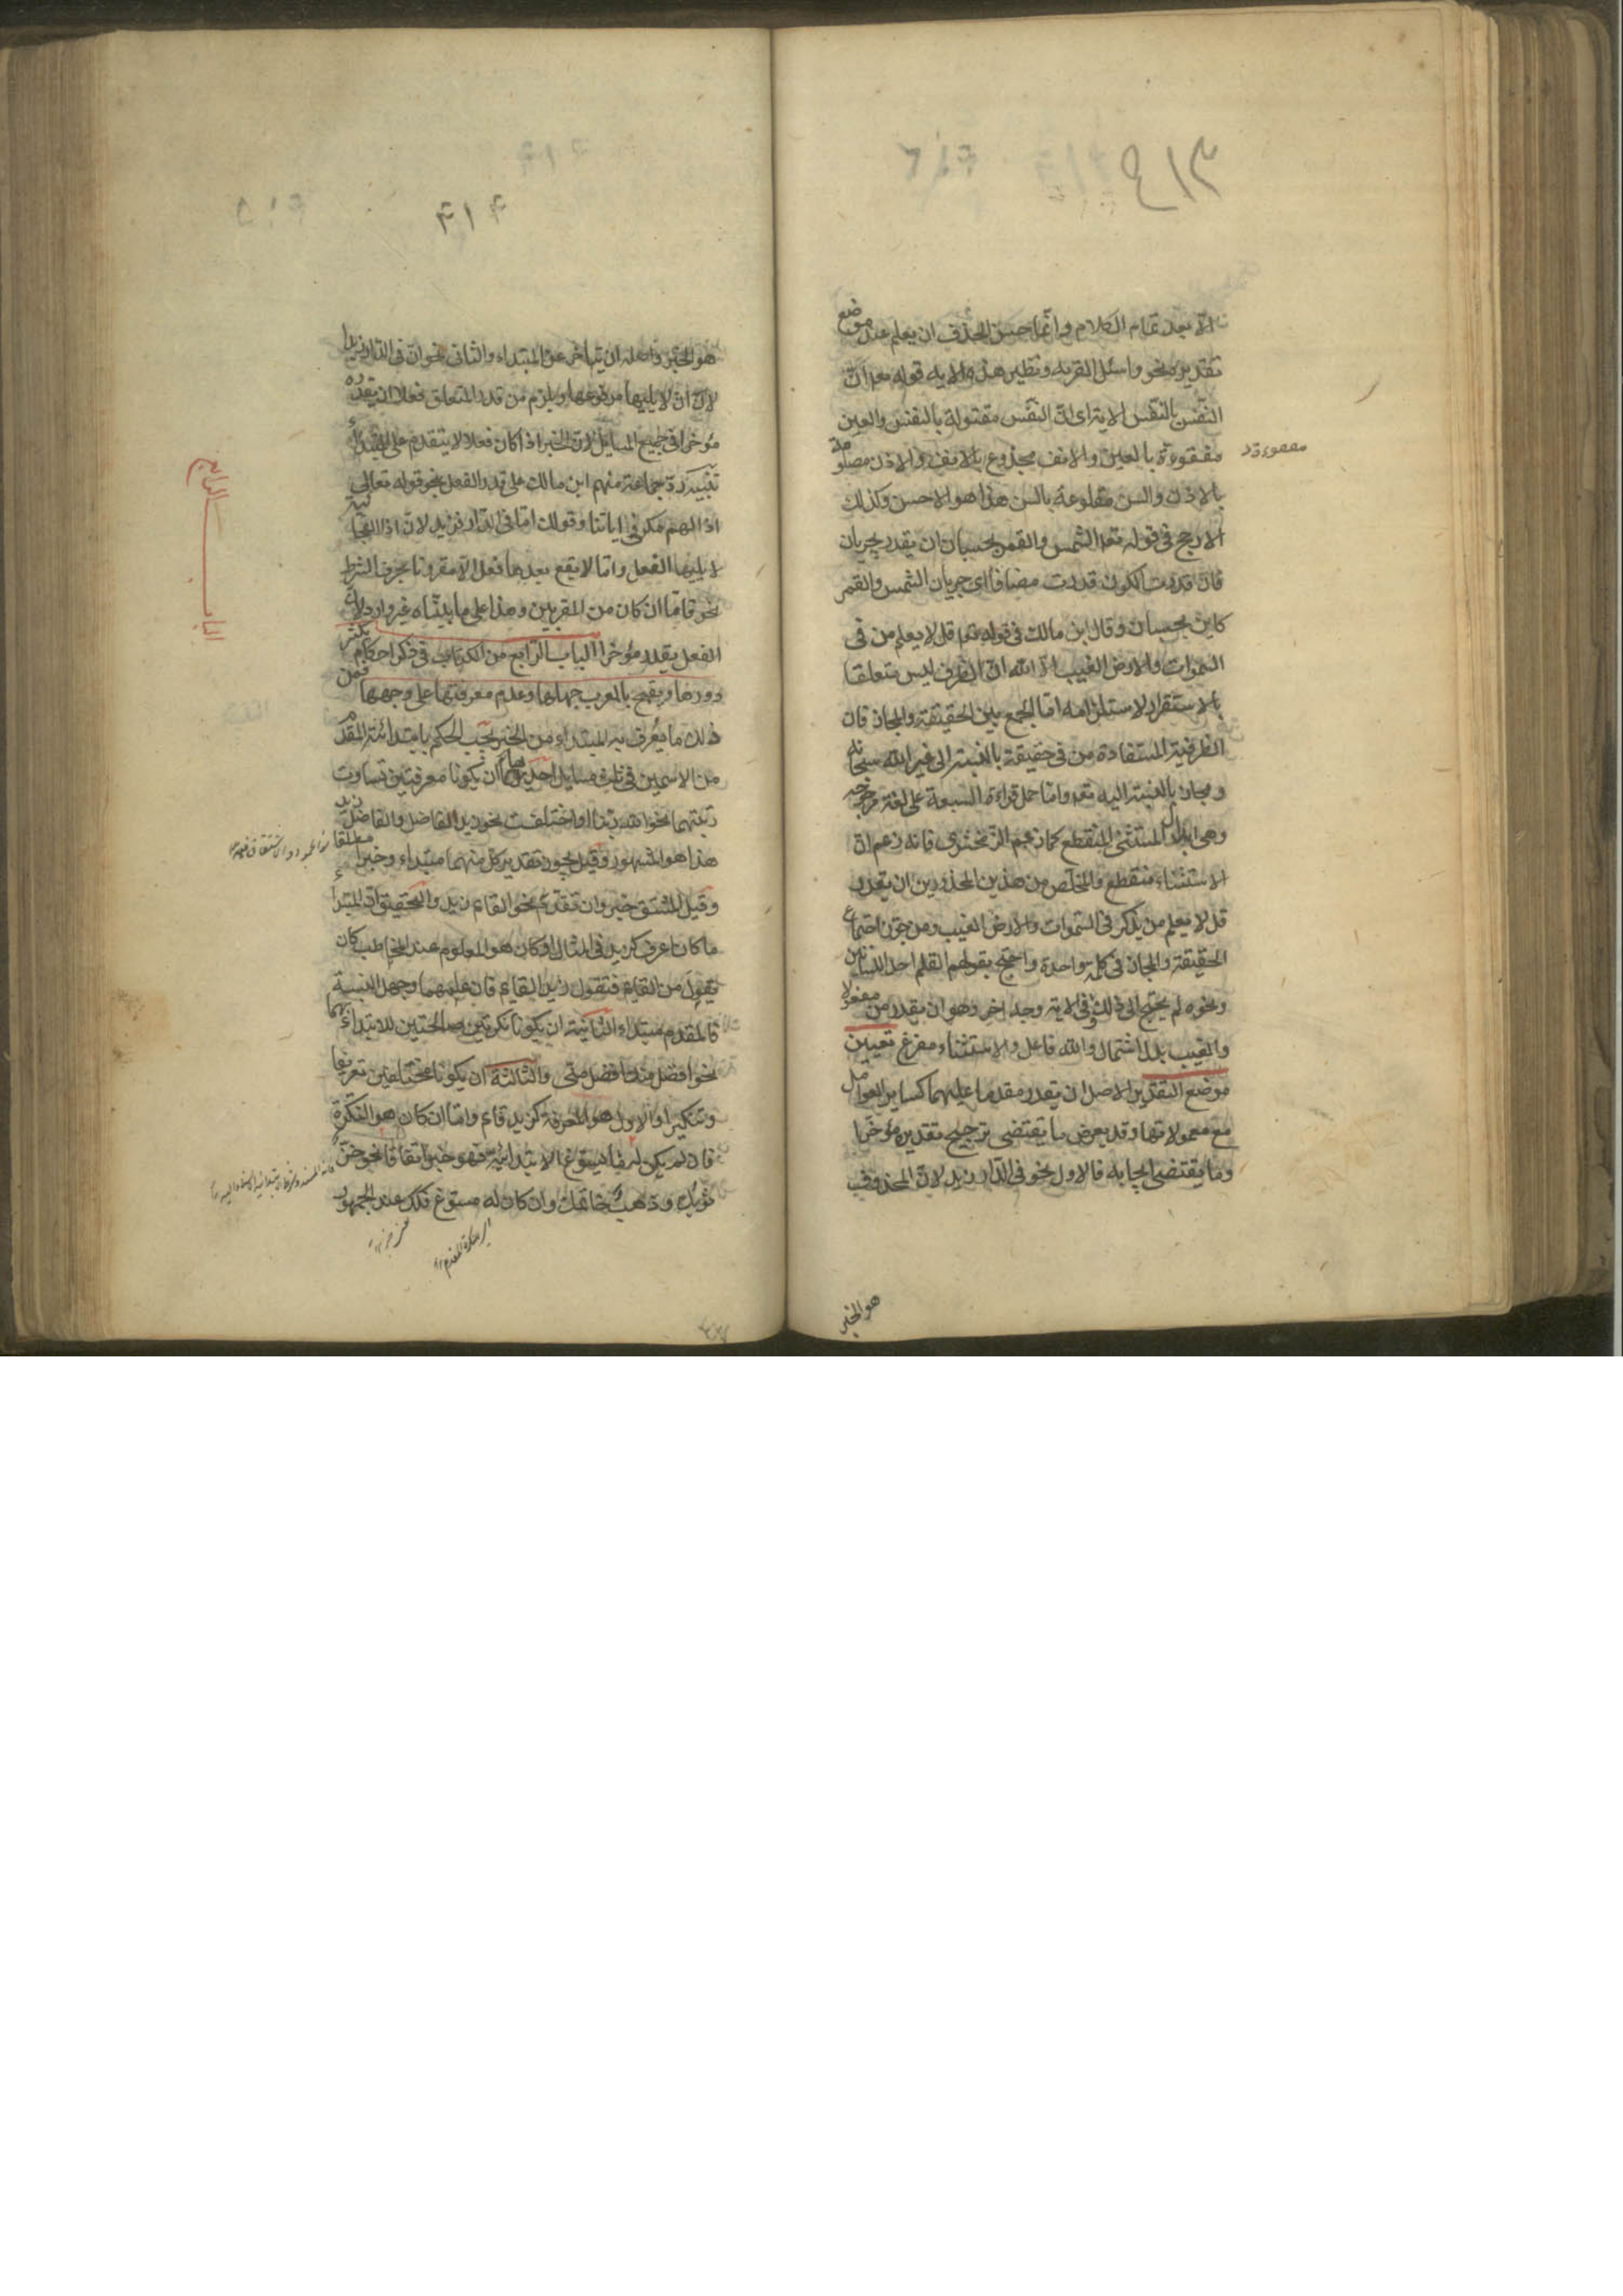 الا بعد تمام الكلام وانما حسن الحذف ان يعلم عند موضع
تقديره نحو واسئل القرية ونظير هذه الاية قوله تعالى ان
النفس بالنفس الا ترى ان النفس مقتولة بالنفس والعين
مفقوءة بالعين والانف مجذوع بالانف والاذن مصلومة
بالاذن والسن مقلوعة بالسن هذا هو الاحسن وكذلك
الارجح فى قوله تعالى الشمس والقمر بحسبان ان يقدر يجريان
فان قدرت الكون قدرت مضافا اى جريان الشمس والقمر
كاين بحسبان وقال ابن مالك فى قوله تعالى قل لا يعلم من فى
السموات والارض الغيب الا الله ان الظرف ليس متعلقا
بالاستقرار لاستلزامه اما الجمع بين الحقيقة والمجاز فان
الظرفية المستفادة من فى حقيقة بالنسبة الى غير الله سبحانه
ومجاز بالنسبة اليه تعالى واما حمل قراءة السبعة على لغة مرجوحة
وهى ابدال المستثنى المنقطع كما زعم الزمخشرى فانه زعم ان
الاستثناء منقطع والمخلص من هذين المحذورين ان يقدر
قل لا يعلم من يذكر فى السموات والارض الغيب ومن جوز اجتماع
الحقيقة والمجاز فى كلمة واحدة واحتج بقولهم القلم احد اللسانين
ونحوه لم يحتج الى ذلك وفى الاية وجه اخر وهو ان يقدر من مفعولا
والغيب بدل اشتمال والله فاعل والاستثناء مفرغ تعيين
موضع التقدير الاصل ان يقدر مقدما عليهما كساير العوامل
مع معمولاتها وقد يعرض ما يقتضى ترجيح تقديره مؤخرا
وما يقتضى ايجابه فالاول نحو فى الدار زيد لان المحذوف
هو الخبر
هو الخبر واصله ان يتاخر عن المبتداء والثانى نحو ان فى الدار زيدا
لان ان لا يليها مرفوعها ويلزم من قدر المتعلق فعلا ان يقدره
مؤخرا فى جميع المسايل لان الخبر اذا كان فعلا لا يتقدم على المبتداء
تنبيه رد جماعة منهم ابن مالك على قدر الفعل نحو قوله تعالى
اذا لهم مكر فى اياتنا وقولك اما فى الدار فزيد لان اذا الفجائية
لا يليها الفعل واما لا يقع بعدها فعل الا مقرونا بحرف الشرط
نحو فاما ان كان من المقربين وهذا على ما بيناه غير وارد لان
الفعل يقدر مؤخرا الباب الرابع من الكتاب فى ذكر احكام يكثر
دورها ويقبح بالمعرب جهلها وعدم معرفتها على وجهها فمن
ذلك ما يعرف به المبتداء من الخبر يجب الحكم بابتدائية المقدم
من الاسمين فى ثلث مسايل احديها ان يكونا معرفتين تساوت
رتبتهما نحو الله ربنا او اختلفت نحو زيد الفاضل والفاضل زيد
هذا هو المشهور وقيل يجوز تقدير كل منهما مبتداء وخبرا مطلقا
وقيل المشتق خبر وان تقدم نحو القائم زيد والتحقيق ان المبتدأ
ما كان اعرف كزيد فى المثال او كان هو المعلوم عند المخاطب كان
يقول من القائم فتقول زيد القائم فان علمهما وجهل النسبة
فالمقدم مبتداء الثانية ان يكونا نكرتين صالحتين للابتداء بهما
نحو افضل منك افضل منى والثالثة ان يكونا مختلفين تعريفا
وتنكيرا والاول هو المعرفة كزيد قائم واما ان كان هو النكرة
فان لم يكن له ما يسوغ الابتدائية فهو خبر اتفاقا نحو خز
ثوبك وذهب خاتمك وان كان له مسوغ فكك عند الجمهور
الباب الرابع